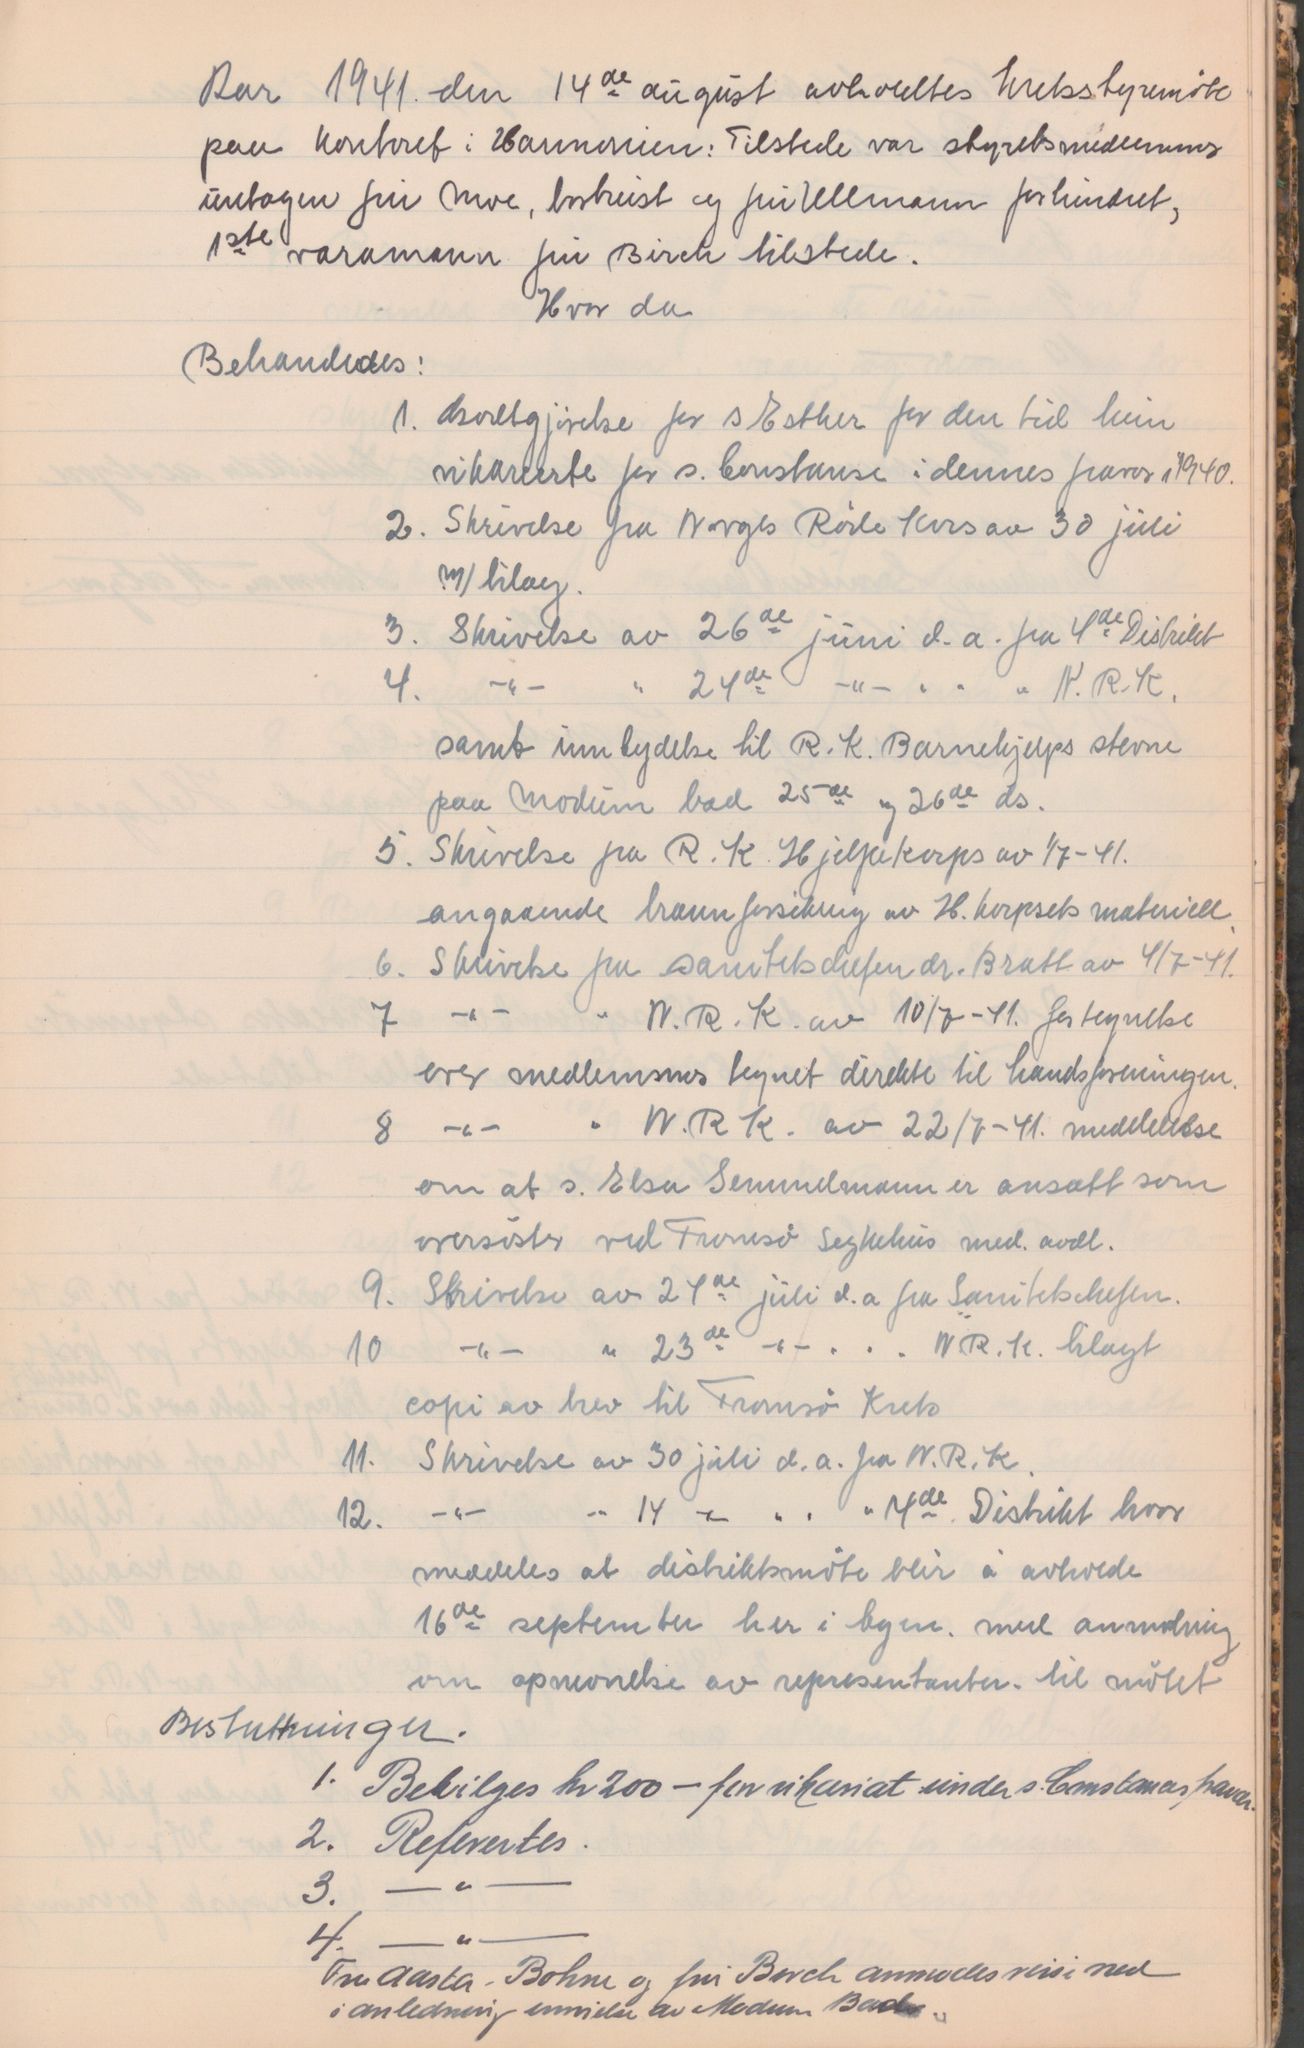 Aar 1941. den 14de august avholdtes kretsstyremöte
paa kontoret i Harmonien: Tilstede var styretsmedlemmer
untagen fru Moe, bortreist og fru Ullmann forhindret,
1ste varamann fru Birch tilstede.
Hvor da
Behandledes:
1. Godtgjörelse for s Esther for den tid hun
vikarierte for s. Constanse i dennes fravær i 1940.
2. Skrivelse fra Norges Röde Kors av 30 juli
m/ bilag.
3. Skrivelse av 26de juni d.a. fra 4de Distrikt
4. -"- " 24de -"- " " " N.R.K.
samt innbydelse til R.K. Barnehjelps stevne
paa Modum bad 25de og 26de ds.
5. Skrivelse fra R.K. Hjelpekorps av 1/7-41.
angaaende brannforsikring av H.korpsets materiell.
6. Skrivelse fra sanitetschefen dr. Bratt av 4/7-41.
7 -"- " N.R.K. av 10/7-41. fortegnelse
over medlemmer tegnet direkte til handsforeningen.
8 -"- " N.R.K. av 22/7-41. meddelelse
om at s. Elsa Semmelmann er ansatt som
oversöster ved Tromsö Sykehus med. avdl.
9. Skrivelse av 24de juli d.a fra Sanitetschefen.
10 -"- " 23de -"- " " " N.R.K. bilagt
copi av brev til Tromsö Krets
11. Skrivelse av 30 juli d.a. fra N.R.K.
12. -"- -"- 14 -"- " " " 4de Distrikt hvor
meddeles at distriktsmöte blir å avholde
16de september her i byen. med anmodning
om opnevnelse av representanter. til mötet
Beslutninger.
1. Bevilges kr 200 — for vikariat under s. Constanses fravær.
2. Refereertes.
3. — " —
4. — " —
Fru Aasta-Bohne og fru Birch anmodes reise ned
i anledning innvielse av Modum Bad.